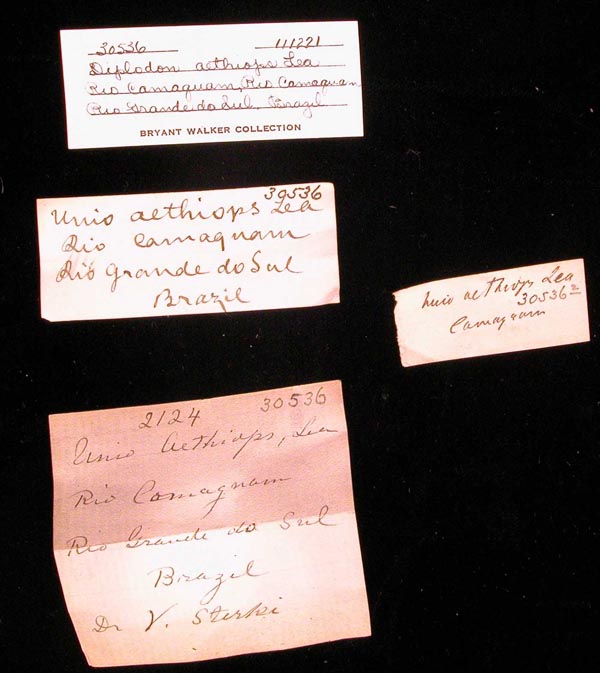 30536 111221
Diplodon aethiops Lea
Rio Camaquam, Rio Camaquam
Rio Grande do Sul. Brazil
BRYANT WALKER COLLECTION
30536
Unio aethiops Lea
Rio Camaquam
Rio Grande do Sul
Brazil
Unio aethiops Lea
30536a
Camaquam
2124 30536
Unio Aethiops, Lea
Rio Camaquam
Rio Grande do Sul
Brazil
Dr V. Sterki